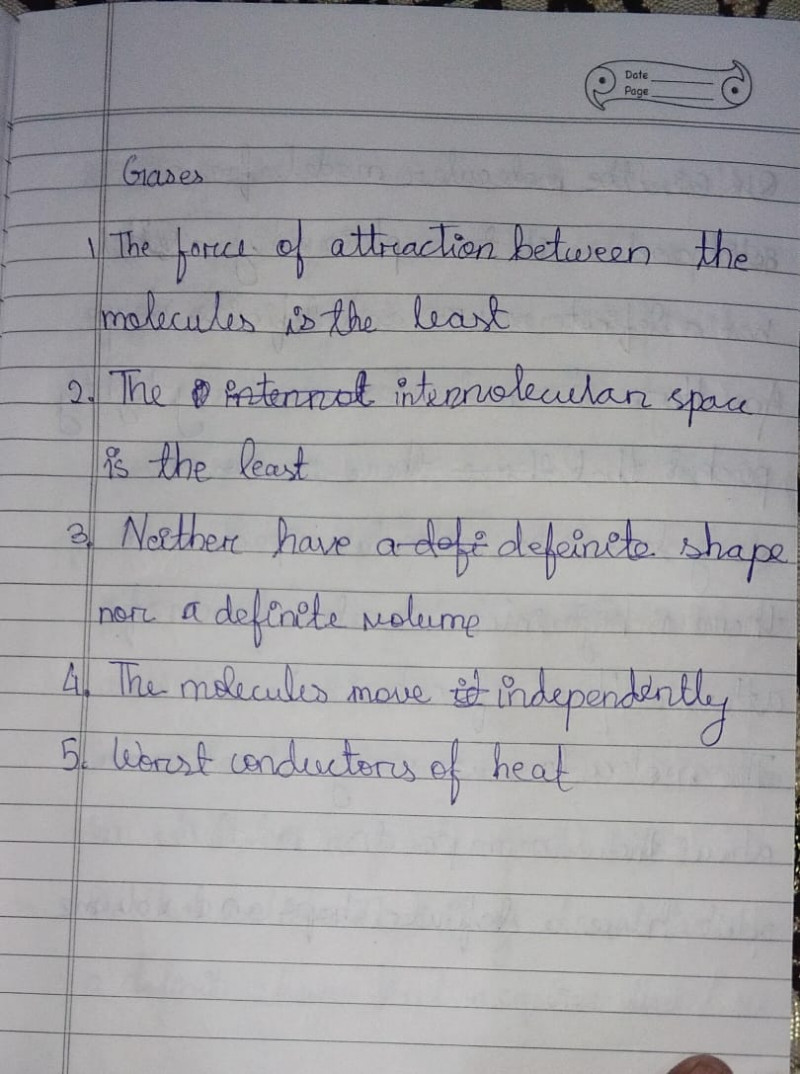 Date
Page
Gases
1 The force of attraction between the
molecules is the least
2. The intermolecular space
is the least
3. Neither have a defi defeinite shape
nor a definite volume
4. The molecules move it independently
5. Worst conductors of heat